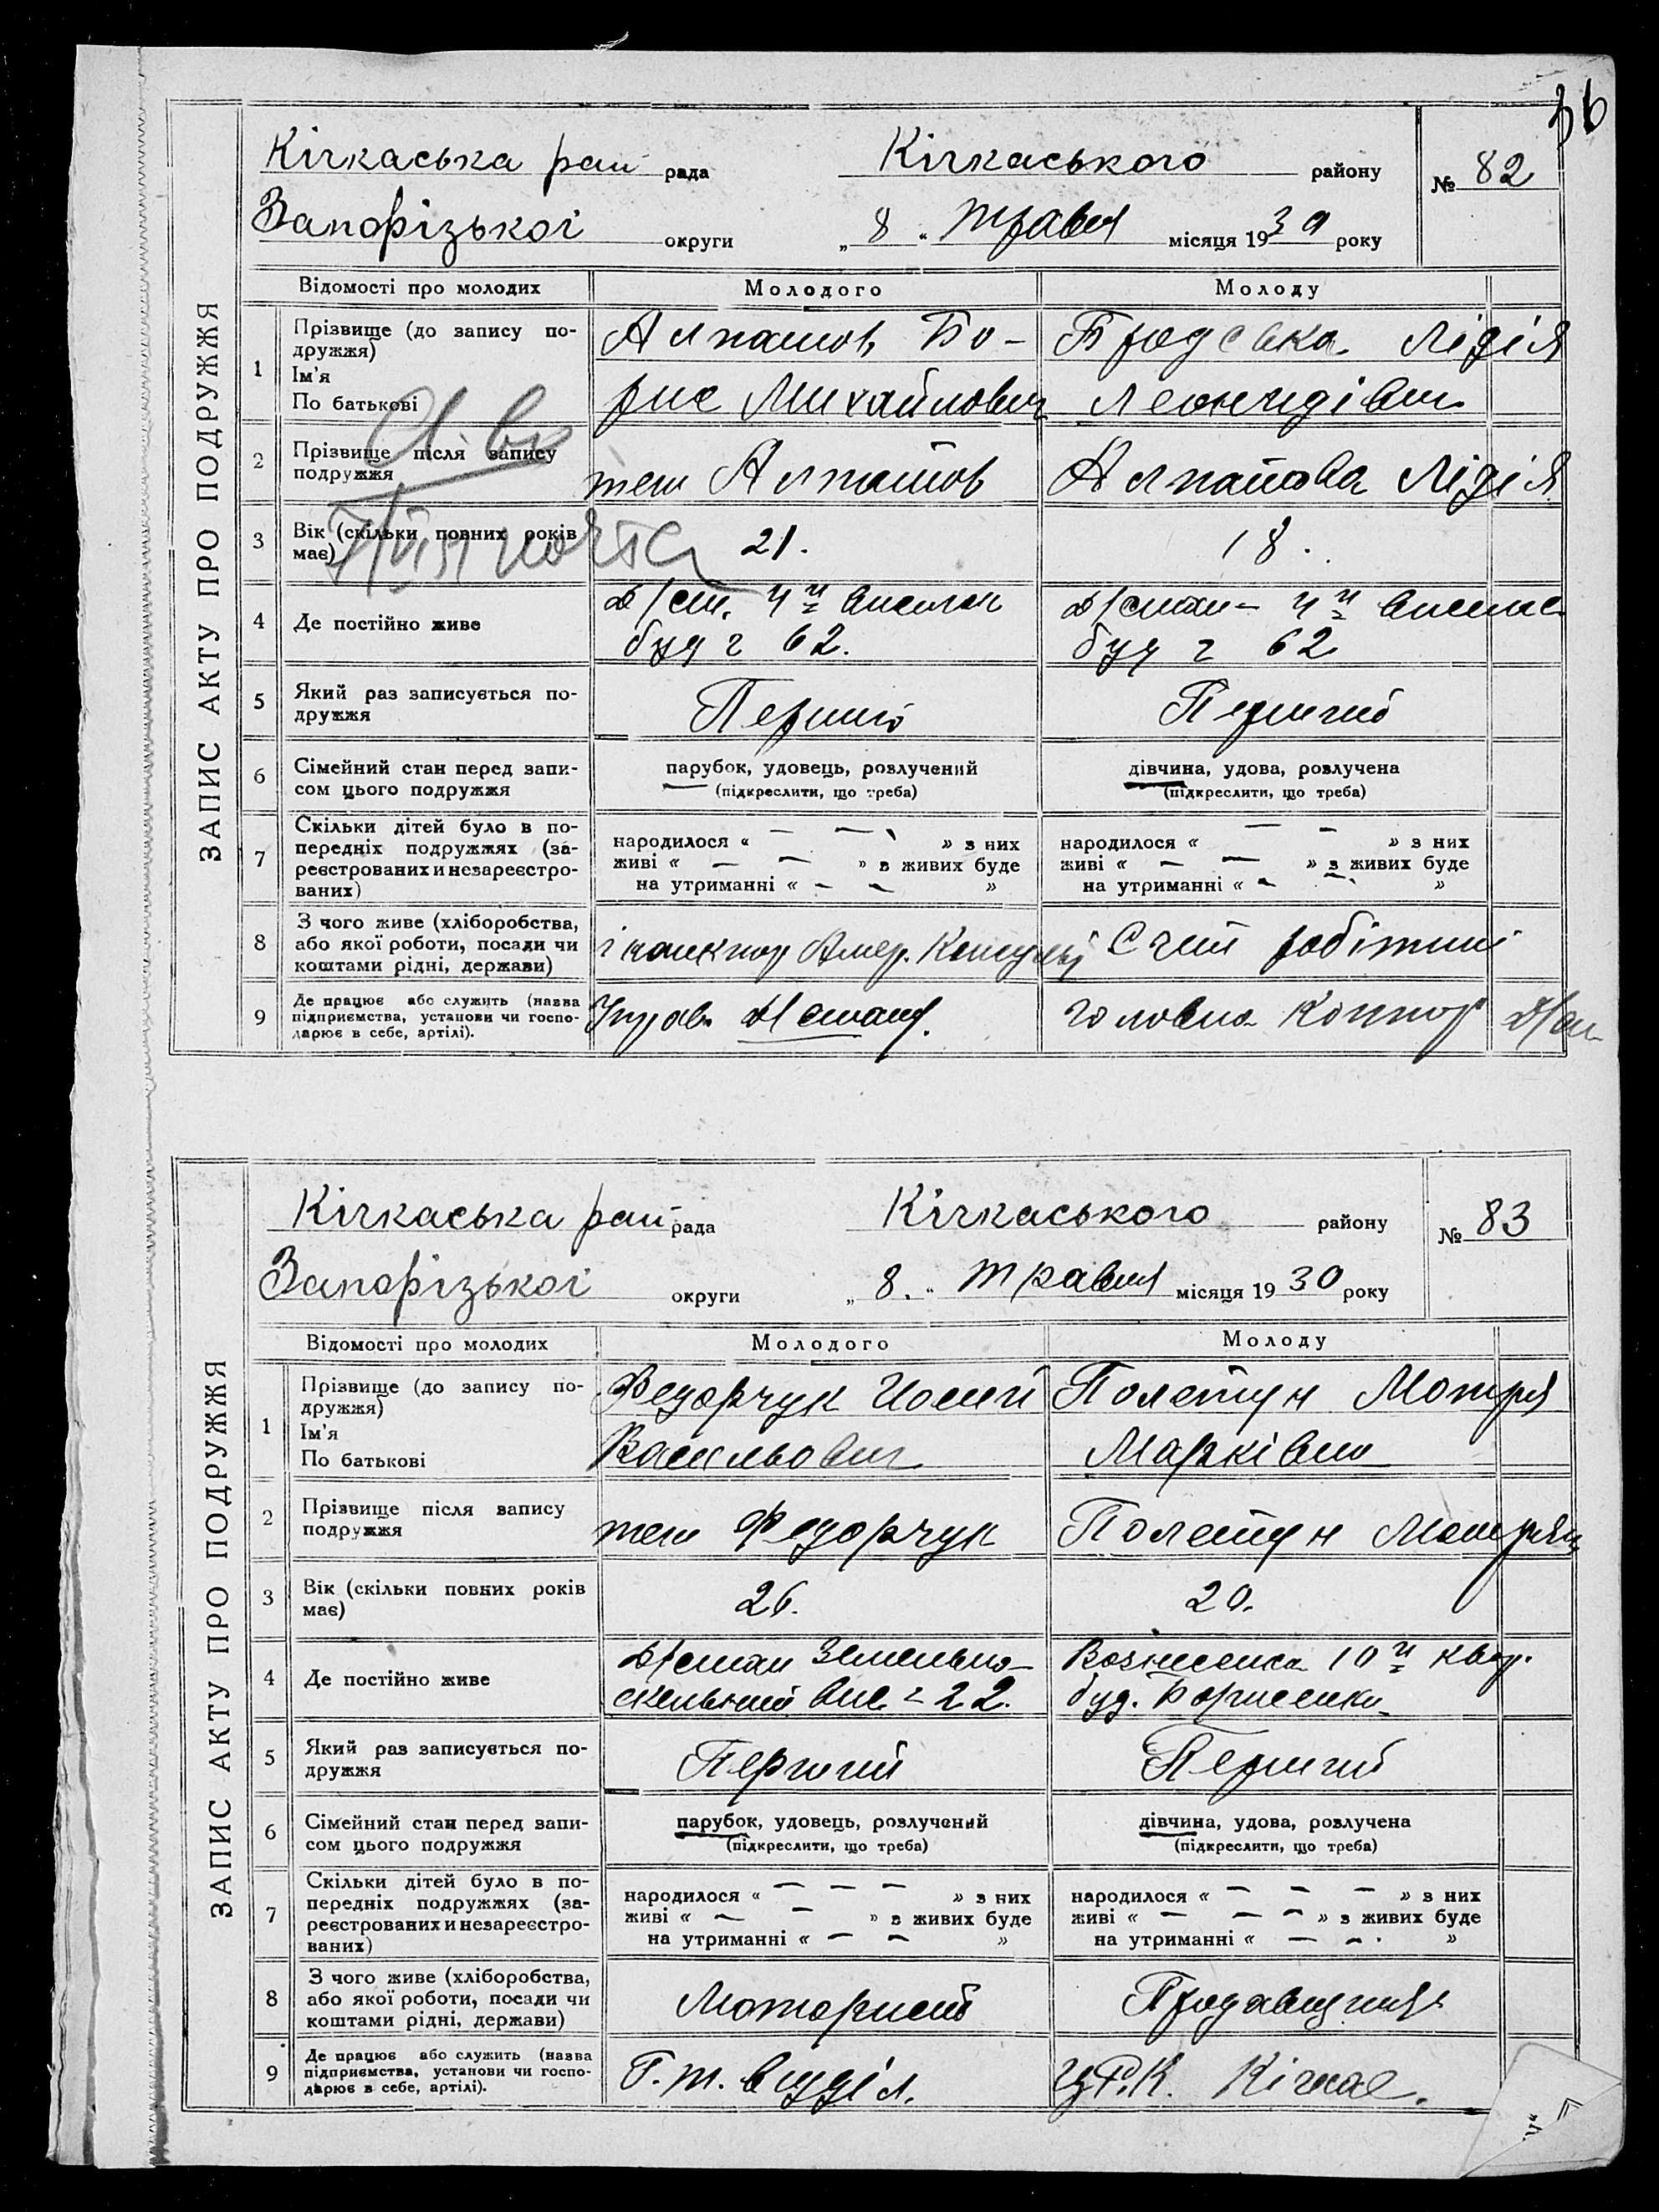 36
ЗАПИС АКТУ ПРО ПОДРУЖЖЯ
Кічкаська рай рада Кічкаського району № 82
Запорізької округи „8“ травня місяця 1930 року
Відомості про молодих Молодого Молоду
1 Прізвище (до запису подружжя) Ім'я По батькові
Бо-
Бродська Лідія
рис Михайлович
Леонидівна
2 Прізвище після запису подружжя
теж
Лідія
3 Вік (скільки повних років має) 21. 18.
4 Де постійно живе
Д/ст. 4й виселок
буд г 62.
Д/стан- 4й
буд г 62
5 Який раз записується подружжя Перший Перший
6 Сімейний стан перед записом цього подружжя
парубок, удовець, розлучений (підкреслити, що треба)
дівчина, удова, розлучена (підкреслити, що треба)
7 Скільки дітей було в попередніх подружжях (зареєстрованих и незареєстрованих)
народилося « — — » з них
живі « — — » з живих буде
на утриманні « - - »
народилося « — - » з них
живі « — — » з живих буде
на утриманні « - - »
8 З чого живе (хліборобства, або якої роботи, посади чи коштами рідні, держави)
Амер.
робітниці
9 Де працює або служить (назва підприємства, установи чи господарює в себе, артілі).
Управ.
головна контор
ЗАПИС АКТУ ПРО ПОДРУЖЖЯ
Кічкаська рай рада Кічкаського району № 83
Запорізької округи „8.“ травня місяця 1930 року
Відомості про молодих Молодого Молоду
1 Прізвище (до запису подружжя) Ім'я По батькові
Федорчук
Мотря
Васильович
Марківна
2 Прізвище після запису подружжя
теж Федорчук
3 Вік (скільки повних років має) 26. 20.
4 Де постійно живе
Д/стан
вис г 22.
Вознесенка 10й квар.
буд. Борисенко
5 Який раз записується подружжя Перший Перший
6 Сімейний стан перед записом цього подружжя
парубок, удовець, розлучений (підкреслити, що треба)
дівчина, удова, розлучена (підкреслити, що треба)
7 Скільки дітей було в попередніх подружжях (зареєстрованих и незареєстрованих)
народилося « — — — » з них
живі « — - » з живих буде
на утриманні « — - »
народилося « — — — » з них
живі « — — - » з живих буде
на утриманні « — - . »
8 З чого живе (хліборобства, або якої роботи, посади чи коштами рідні, держави)
Моторист
Продавщиця
9 Де працює або служить (назва підприємства, установи чи господарює в себе, артілі).
Г.т. відділ.
ЦРК. Кічкас.